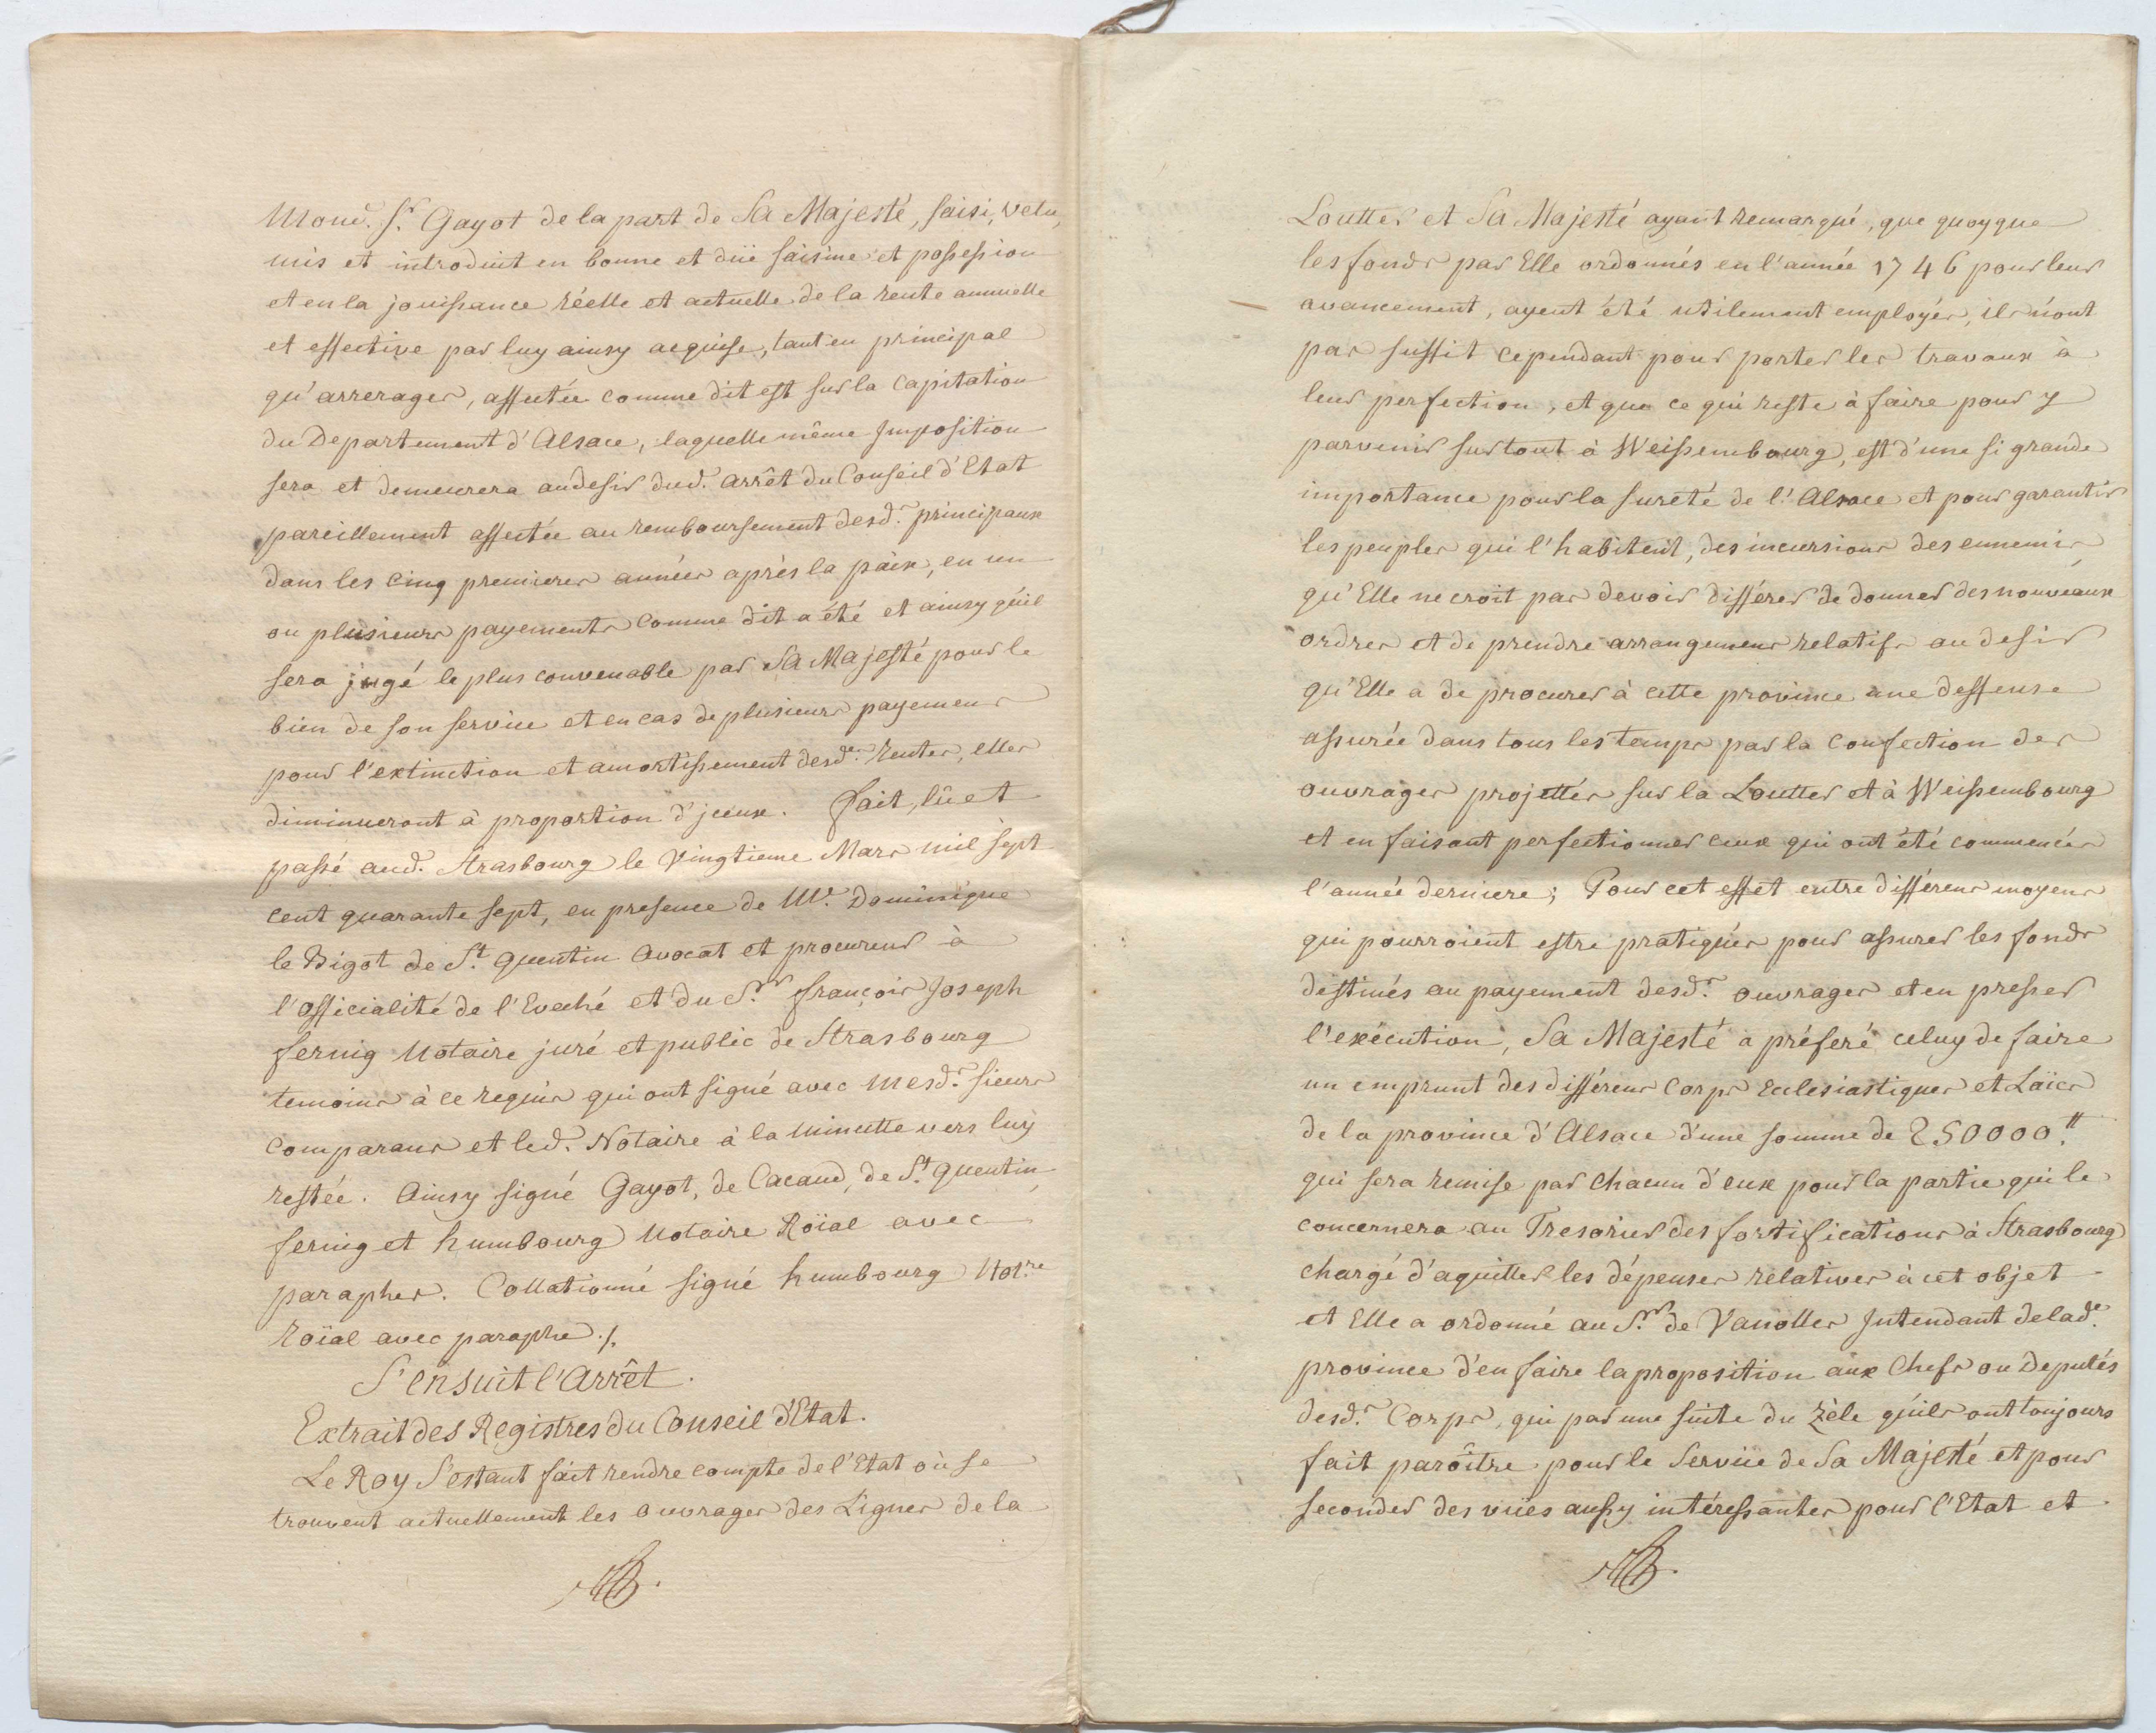 Mond. Sr. Gayot de la part de Sa Majesté, saisi, vetu,
mis et introduit en bonne et düe saisine et possession
et en la jouissance réelle et actuelle de la rente annuelle
et effective par luy ainsy acquise, tant en principal
qu'arrerages, affectée comme dit est sur la Capitation
du Departement d'Alsace, laquelle même Imposition
sera et demeurera au desir dud. Arrêt du Conseil d'Etat
pareillement affectée au remboursement desd.s principaux
dans les cinq premieres années après la paix, en un
ou plusieurs payements comme dit a été et ainsy qu'il
sera jugé le plus convenable par Sa Majesté pour le
bien de son service et en cas de plusieurs payemens
pour l'extinction et amortissement desd.es rentes, elles
diminueront à proportion d'jceux. fait, lû et
passé aud. Strasbourg le Vingtieme Mars mil sept
cent quarante sept, en presence de Me. Dominique
le Bigot de St. Quentin Avocat et procureur à
l'officialité de l'Eveché et du Sr. françois Joseph
fernig Notaire juré et public de Strasbourg
temoins à ce requis qui ont signé avec mesd.s sieurs
Comparans et led. Notaire à la Minutte vers luy
restée. Ainsy signé Gayot, de Cacaud, de St. Quentin,
fernig et humbourg Notaire Roïal avec
paraphes. Collationné signé humbourg Not.re
Roïal avec paraphe./.
S'ensuit l'Arrêt.
Extrait des Registres du Conseil d'Etat.
Le Roy S'estant fait rendre compte de l'Etat où se
trouvent actuellement les ouvrages des Lignes de la
Loutter et Sa Majesté ayant remarqué, que quoyque
les fonds par Elle ordonnés en l'année 1746 pour leur
avancement, ayent été utilement employés, ils n'ont
pas suffit cependant pour porter les travaux à
leur perfection, et que ce qui reste à faire pour y
parvenir surtout à Weissembourg, est d'une si grande
importance pour la sureté de l'Alsace et pour garantir
les peuples qui l'habitent, des incursions des ennemis
qu'Elle ne croit pas devoir différer de donner des nouveaux
ordres et de prendre arrangemens relatifs au desir
qu'Elle a de procurer à cette province une deffense
assurée dans tous les temps par la Confection des
ouvrages projettés sur la Loutter et à Weissembourg
et en faisant perfectionner ceux qui ont été commencés
l'année derniere; Pour cet effet entre différens moyens
qui pourroient estre pratiqués pour assurer les fonds
destinés au payement desd.s ouvrages et en presser
l'exécution, Sa Majesté a préferé celuy de faire
un emprunt des différens Corps Ecclesiastiques et Laïcs
de la province d'Alsace d'une somme de 250000.tt
qui sera remise par chacun d'eux pour la partie qui le
concernera au Tresorier des fortifications à Strasbourg
chargé d'aquitter les dépenses relatives à cet objet
et Elle a ordonné au Sr. de Vanolles Intendant de lad.e
province d'en faire la proposition aux Chefs ou Deputés
desd.s Corps, qui par une suite du Zèle qu'ils ont toujours
fait parôitre pour le Service de Sa Majesté et pour
seconder des vües aussy intéressantes pour l'Etat et